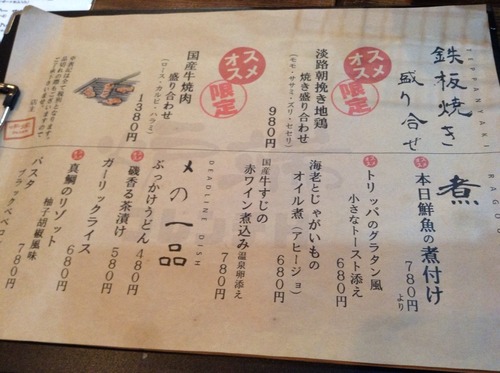 鉄板焼き
盛り合せ
TEPPANYAKI
オススメ
限定
淡路朝挽き地鶏
焼き盛り合わせ
(モモ・ササミ・ズリ・セセリ)
980円
オススメ
限定
国産牛焼肉
盛り合わせ
(ロース・カルビ・ハラミ)
1380円
店主
煮
本日鮮魚の煮付け
780円より
トリッパのグラタン風
小さなトースト添え
680円
海老とじゃがいもの
オイル煮(アヒージョ)
680円
国産牛すじの
赤ワイン煮込み 温泉卵添え
780円
〆の一品
DEADLINE DISH
ぶっかけうどん 480円
磯香る茶漬け 580円
ガーリックライス
680円
真鯛のリゾット
柚子胡椒風味
780円
パスタ